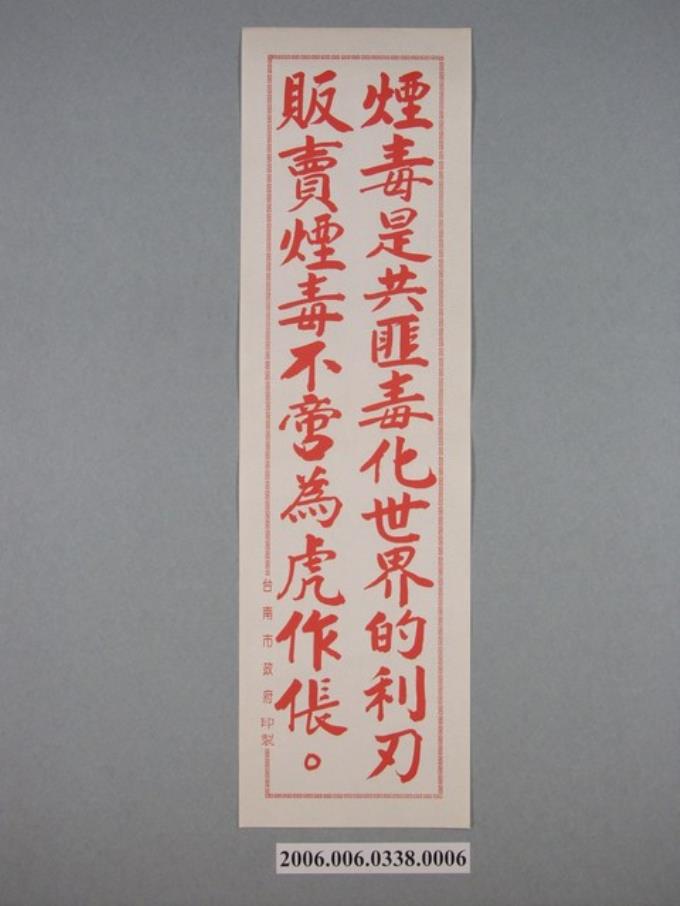 煙毒是共匪毒化世界的利刃
販賣煙毒不啻為虎作倀。
台南市政府印製
2006.006.0338.0006